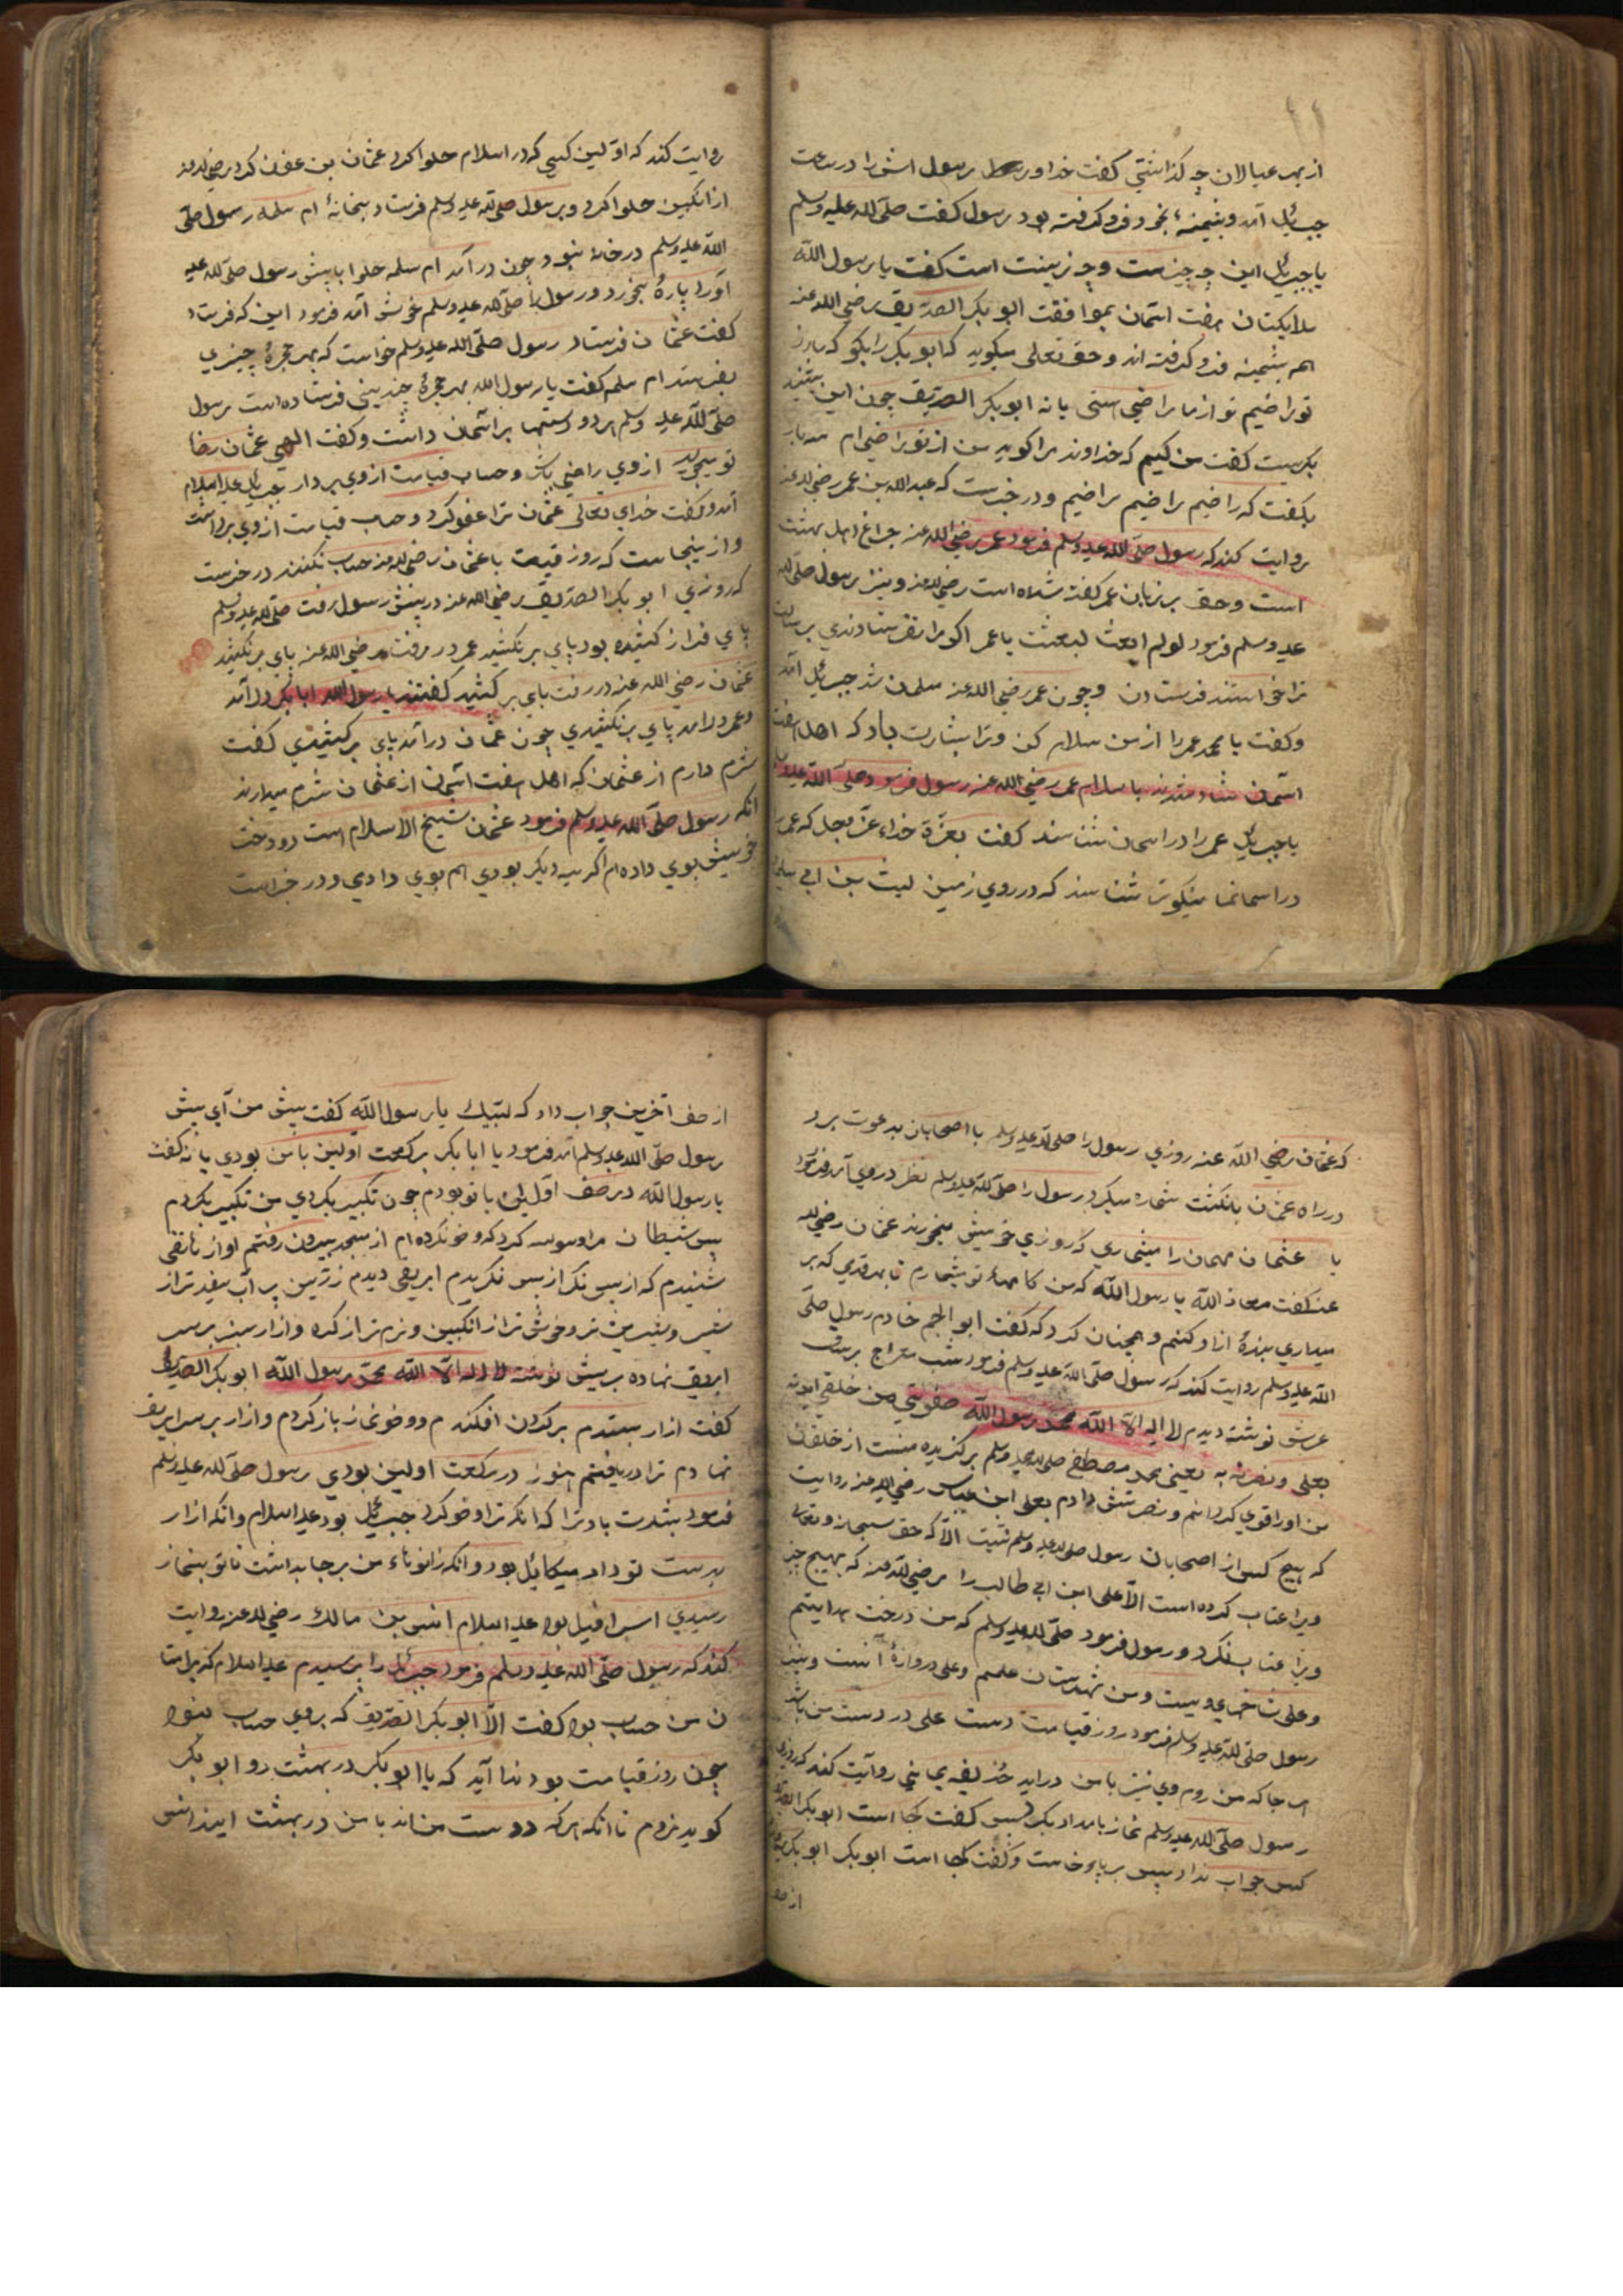 از بهر عیالان چه گذاشتی گفت خدا و رسول رسول اش را در ساعت
جبرئیل آمد و پشمینهٔ بخود فرو گرفته بود رسول گفت صلّی الله علیه وسلم
یا جبرئیل این چه چیزست و چه زینت است گفت یا رسول الله
ملایکتان هفت آسمان بموافقت ابو بکر الصدیق رضی الله عنه
هم پشمینه فرو گرفته اند و حق تعالی میگوید که ابو بکر را بگو که ما از
تو راضیم تو از ما راضی هستی یا نه ابو بکر الصدیق چون این بشنید
بگریست گفت من کیم که خداوند مرا گوید من از تو راضی ام سه بار
بگفت که راضیم راضیم راضیم و در خبرست که عبد الله بن عمر رضی الله عنه
روایت کند که رسول صلّی الله علیه وسلم فرمود عمر رضی الله عنه چراغ اهل بهشت
است و حق بر زبان عمر گفته شده است رضی الله عنه و نیز رسول صلّی الله
علیه وسلم فرمود لو لم ابعث لبعثت یا عمر اگر مرا نفرستادندی برسالت
ترا خواستند فرستادن و چون عمر رضی الله عنه مسلمان شد جبرئیل آمد
و گفت یا محمد عمر را از من سلام کن و ترا بشارت باد که اهل هفت
آسمان شاد شدند باسلام عمر رضی الله عنه رسول فرمود صلّی الله علیه وسلم
یا جبرئیل عمر را در اسمان شناسند گفت بعزّة خداء عزّ وجل که عمر را
در اسمانها نیکوتر شناسند که در روی زمین لیث بن ابی سلیم
روایت کند که اوّلین کسی که در اسلام حلوا کرد عثمان بن عفان کرد رضی الله عنه
از انگبین حلوا کرد و برسول صلّی الله علیه وسلم فرستاد بخانهٔ ام سلمه رسول صلّی
الله علیه وسلم در خانه نبود چون در آمد ام سلمه حلوا بپیش رسول صلّی الله علیه
آورد پارهٔ بخورد و رسول را صلّی الله علیه وسلم خوش آمد فرمود این که فرستاد
گفت عثمان فرستاد رسول صلّی الله علیه وسلم خواست که بهر حجرهٔ چیزی
بفرستد ام سلمه گفت یا رسول الله بهر حجرهٔ چندینی فرستاده است رسول
صلّی الله علیه وسلم هر دو دستها بر آسمان داشت و گفت الهی عثمان رضا
تو میجوید از وی راضی باش و حساب قیامت از وی بردار جبرئیل علیه السلام
آمد و گفت خدای تعالی عثمان ترا عفو کرد و حساب قیامت از وی برداشت
و ازینجاست که روز قیمت با عثمان رضی الله عنه حساب نکنند در خبرست
که روزی ابو بکر الصدیق رضی الله عنه در پیش رسول رفت صلّی الله علیه وسلم
پای فراز کشیده بود پای بر نکشید عمر در رفت رضی الله عنه پای بر نکشید
عثمان رضی الله عنه در رفت پای بر کشید گفتند یا رسول الله ابا بکر در آمد
و عمر در امد پای بر نکشیدی چون عثمان در آمد پای بر کشیدی گفت
شرم دارم از عثمان که اهل هفت آسمان از عثمان شرم میدارند
انکه رسول صلّی الله علیه وسلم فرمود عثمان شیخ الاسلام است دو دخت
خویش بوی داده ام اگر سه دیگر بودی هم بوی دادی و در خبر است
که عثمان رضی الله عنه روزی رسول را صلی الله علیه وسلم با اصحابان بدعوت برد
در راه عثمان بانگشت شماره میکرد رسول را صلّی الله علیه وسلم نظر در وی آمد فرمود
یا عثمان مهمان را میشماری که روزی خویش میخورند عثمان رضی الله
عنه گفت معاذ الله یا رسول الله که من کامهاء تو میشمارم تا بهر قدمی که بر
میداری بندهٔ ازاد کنم و همچنان کرد که گفت ابو الحجم خادم رسول صلّی
الله علیه وسلم روایت کند که رسول صلّی الله علیه وسلم فرمود شب معراج بر ساق
عرش نوشته دیدم لا اله الا الله محمد رسول الله صفوتی من خلقی ایدته
بعلی و نصرته به یعنی محمد مصطفی صلی الله علیه وسلم برگزیده منست از خلقان
من او را قوی گردانیم و نصرتش دادم بعلی ابن عباس رضی الله عنه روایت
که هیچ کس از اصحابان رسول صلی الله علیه وسلم نیست الّا که حق سبحانه و تعالی
ویرا عتاب کرده است الّا علی ابن ابی طالب را رضی الله عنه که بهیچ چیز
ویرا عتاب نکرد و رسول فرمود صلّی الله علیه وسلم که من درخت هدایتم
و علی شاخ ویست و من شهرستان علمم و علی دروازهٔ آنست و نیز
رسول صلّی الله علیه وسلم فرمود روز قیامت دست علی در دست من باشد
هر جا که من روم وی نیز با من در اید حذیفه یمانی روایت کند که روزی
رسول صلّی الله علیه وسلم نماز بامداد بکرد پس گفت کجا است ابو بکر الصدیق
کس جواب نداد پس بر پای خاست و گفت کجا است ابو بکر ابو بکر
از صف
از صف آخرین جواب داد که لبّیک یا رسول الله گفت پیش من آی پیش
رسول صلّی الله علیه وسلم آمد فرمود یا ابا بکر برکعت اولین با من بودی یا نه گفت
یا رسول الله در صف اوّلین با تو بودم چون تکبیر بکردی من تکبیر بکردم
پس شیطان مرا وسوسه کرد که وضو نکرده ام از مسجد بیرون رفتم اواز هاتفی
شنیدم که از پس نکر از پس نکریدم ابریقی دیدم زرّین پر آب سفیدتر از
شیر و شیرینتر و خوش تر از انگبین و نرم تر از کره و ازار سبز بر سر
ابریق نهاده بر پیش نوشته لا اله الّا الله محمد رسول الله ابو بکر الصدیق
گفت ازار بستدم بر گردن افکندم و وضو نماز باز کردم و ازار بر سر ابریق
نهادم ترا دریافتم هنوز در رکعت اولین بودی رسول صلّی الله علیه وسلم
فرمود بشارت باد ترا که انکه ترا وضو کرد جبرئیل بود علیه السلام و انکه ازار
بدست تو داد میکائیل بود و انکه زانوهاء من بر جا بداشت تا تو بنماز
رسیدی اسرافیل بود علیه السلام انس بن مالک رضی الله عنه روایت
کند که رسول صلّی الله علیه وسلم فرمود جبرئیل را پرسیدم علیه السلام که بر امتا
ن من حساب بود گفت الّا ابو بکر الصدیق که بر وی حساب نبود
چون روز قیامت بود ندا آید که یا ابو بکر در بهشت رو ابو بکر
گوید نروم تا انکه هر که دوست من اند با من در بهشت